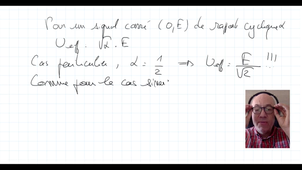 Pour un signal carré (0,E) de rapport cyclique α
Uef = √α . E
Cas particulier, α = 1/2 ⇒ Uef = E/√2 !!!
Comme pour le cas sinus